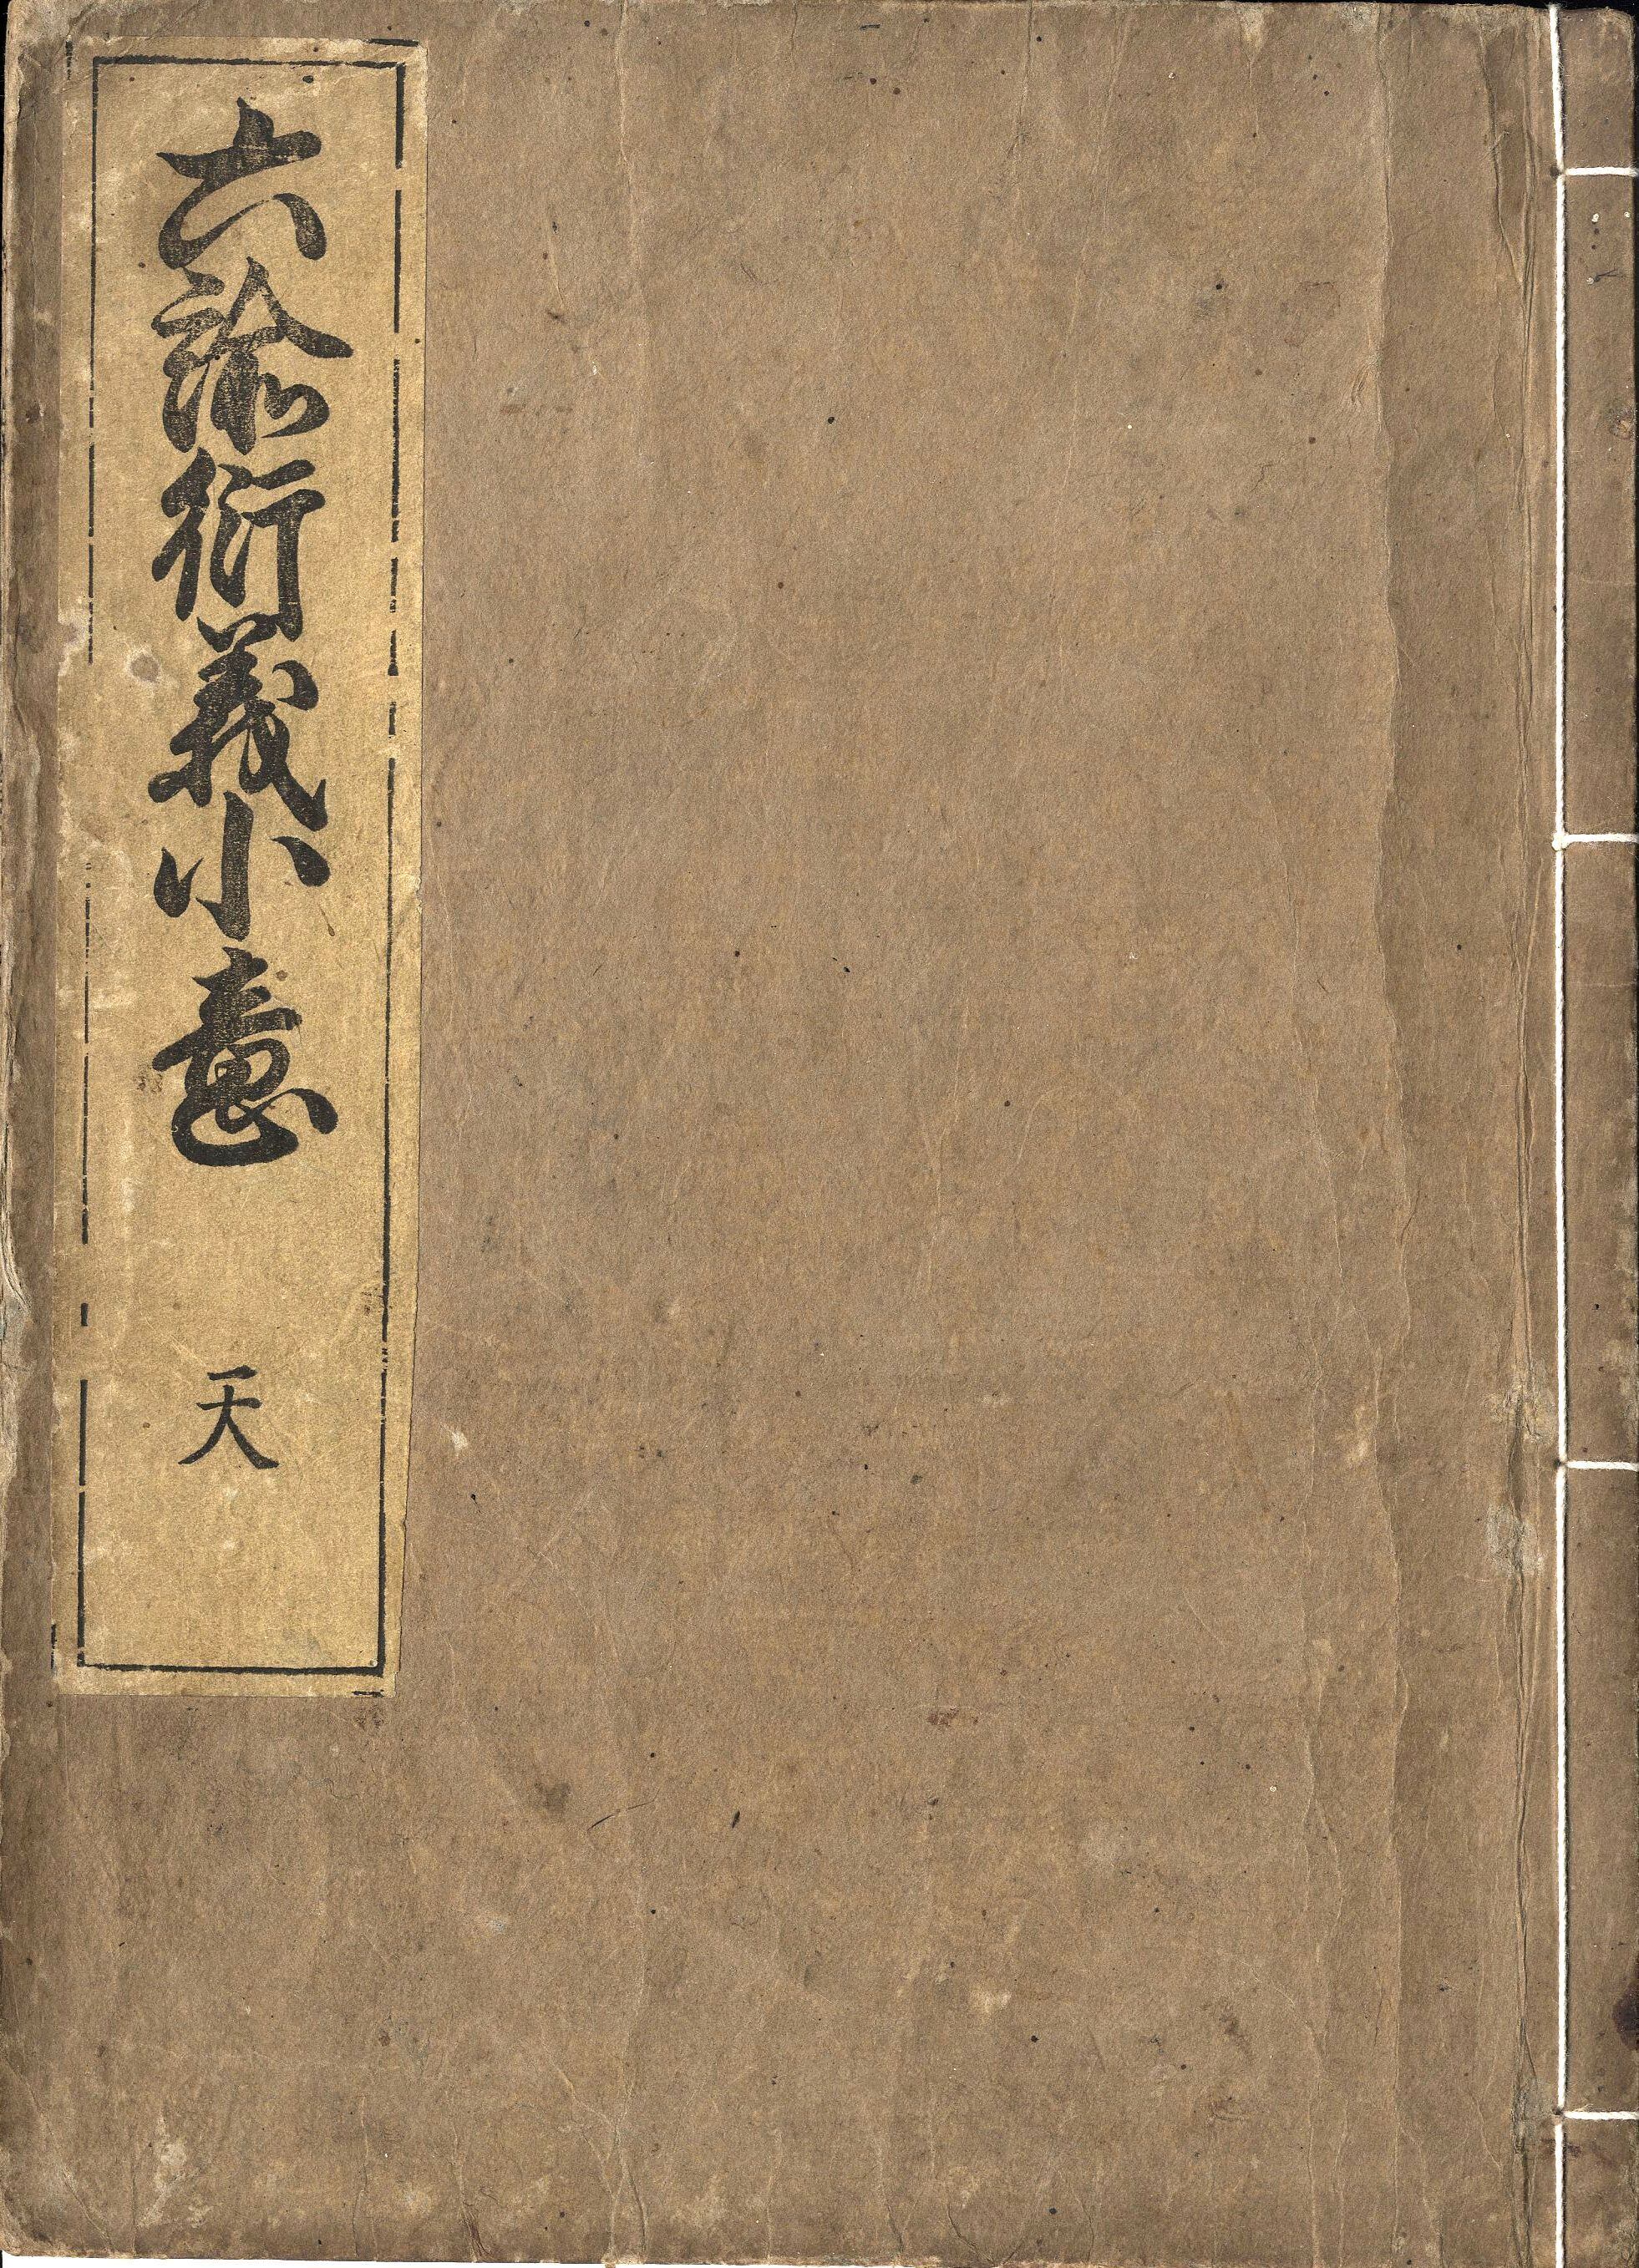 六諭衍義小意
天